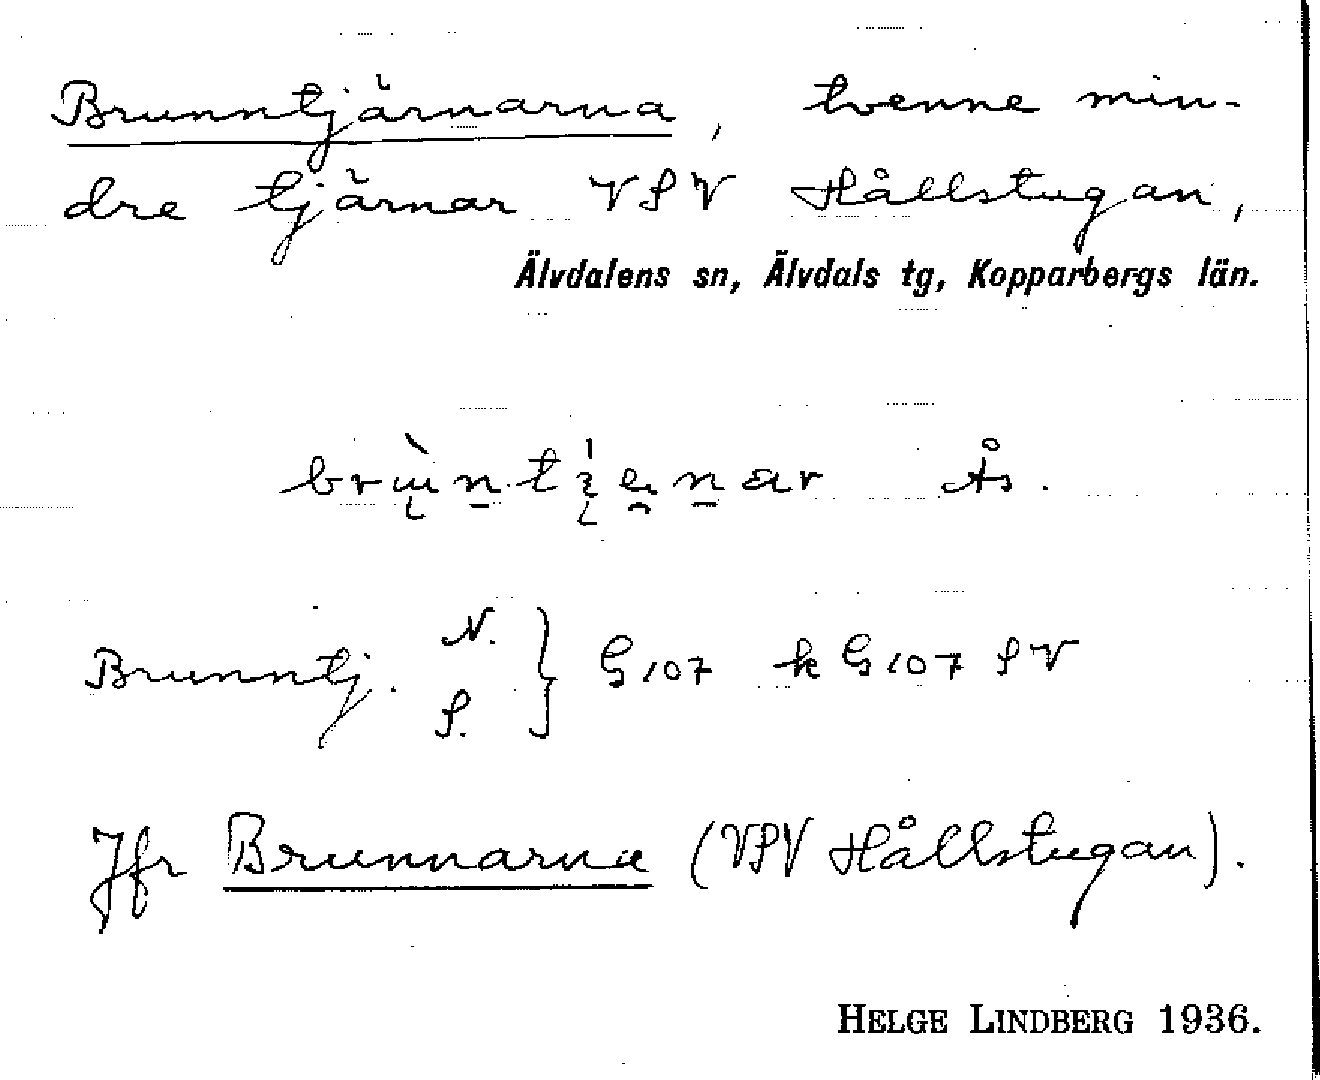 Brunntjärnarna, tvenne min-
dre tjärnar VSV Hållstugan,
Älvdalens sn, Älvdals tg, Kopparbergs län.
Ås.
Brunntj. N. S. } G107 k G107 SV
Jfr Brunnarna (VSV Hållstugan).
HELGE LINDBERG 1936.